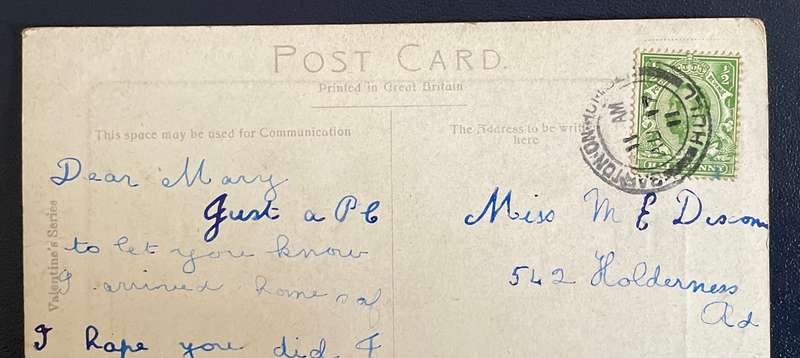 POST CARD.
Printed in Great Britain
This space may be used for Communication
The Address to be
here
Valentine's Series
Dear Mary
Just a PC
to let you know
I arrived home
I hope you did I
Miss M E
542 Holderness
Rd
½
BARTON-ON-HUMBER
HULL
11 AM
11